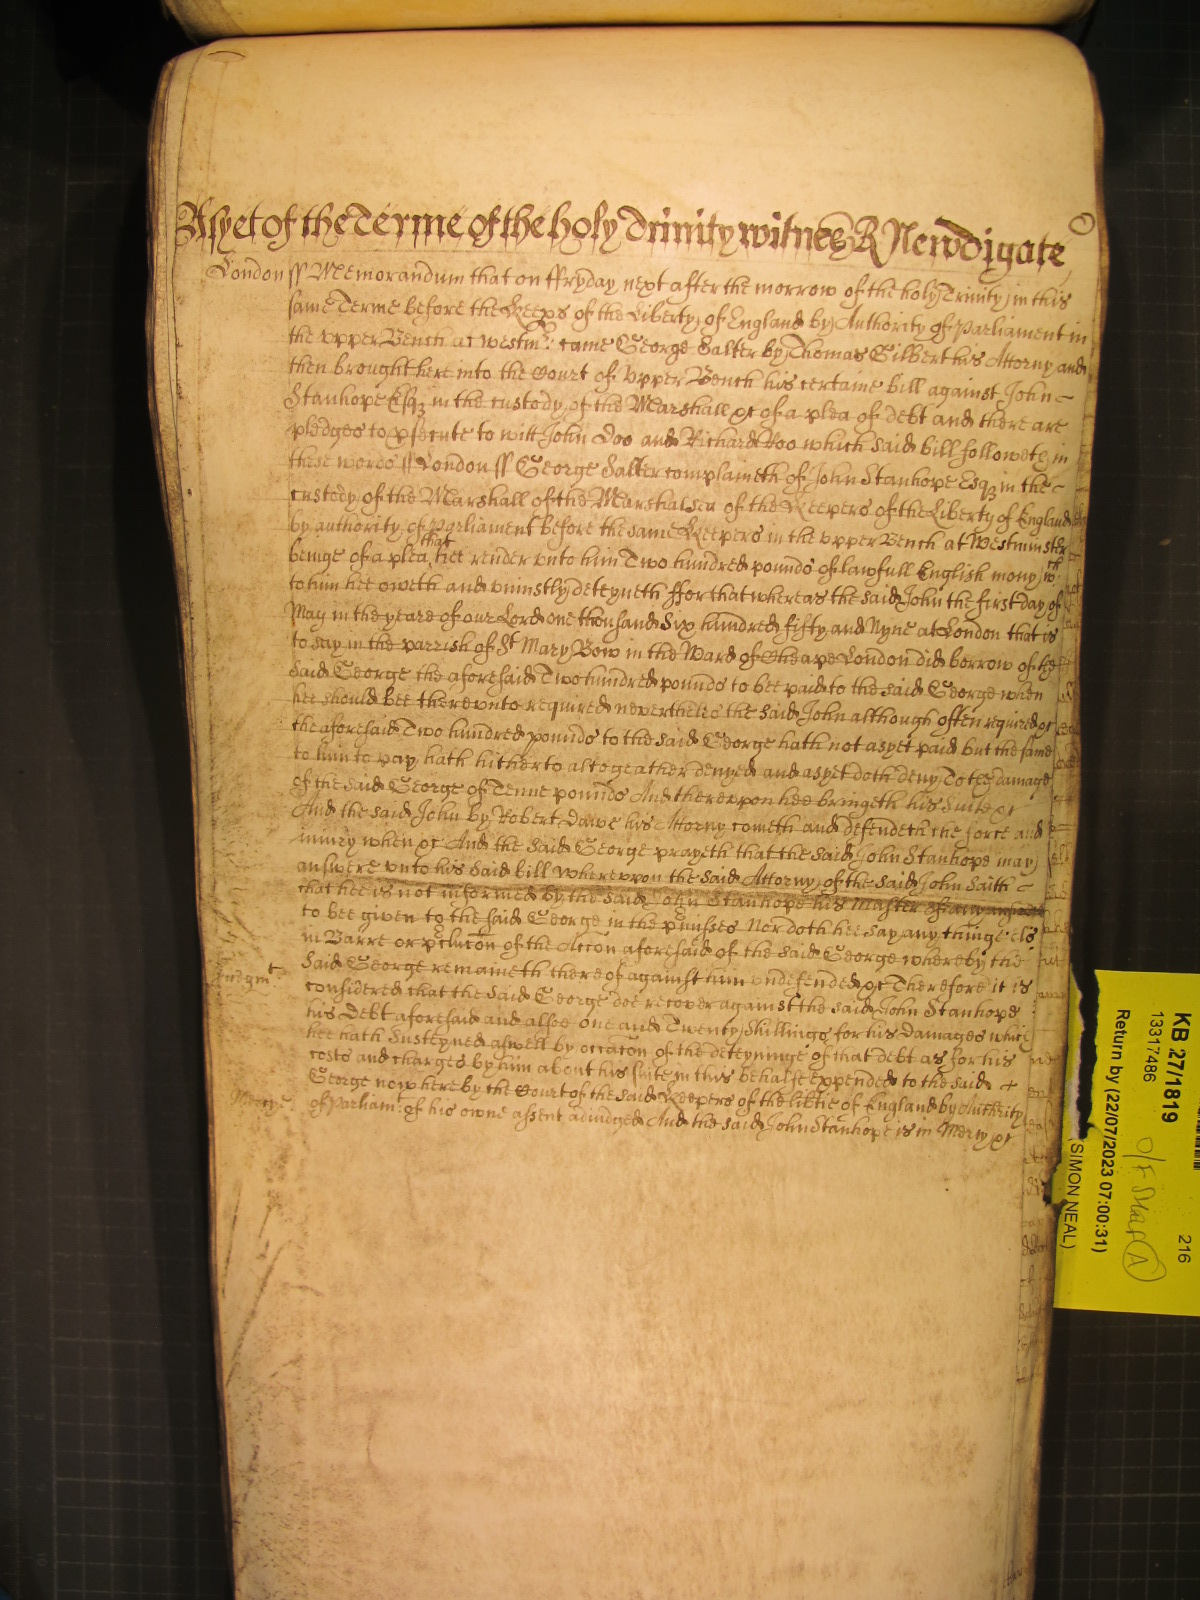 As yet of the Terme of the holy Trinity witnes R Newdigate
London ss Memorandum that on ffryday next after the morrow of the holy Trinity in this
same Terme before the Keeps of the Liberty of England by Authority of Parliament in
the vpper Bench at Westmr: came George Salter by Thomas Gilbert his Attorny and
then brought here into the Court of Vpper Bench his certaine bill against John
Stanhope Esqz in the custody of the Marshall &c of a plea of debt and there are
pledges to psecute to witt John Doo and Richard Roo which said bill followeth in
these words ss London ss George Salter complaineth of John Stanhope Esqz in the
custody of the Marshall of the Marshalsea of the Keepers of the Liberty of England
by authority of Parliament before the same Keepers in the vpper Bench at Westminster
beinge of a plea that hee render vnto him Two hundred pounds of lawfull English mony wch
to him hee oweth and vniustly deteyneth ffor that whereas the said John the first day of
May in the yeare of our Lord one thousand Six hundred fifty and Nyne at London that is
to say in the parrish of St Mary Bow in the Ward of Cheape London did borrow of the
said George the aforesaid Two hundred pounds to bee paid to the said George when
hee should bee therevnto required neverthelес the said John although often required &c
the aforesaid Two hundred pounds to the said George hath not as yet paid but the same
to him to pay hath hitherto altogeather denyed and as yet doth deny To the damage
of the said George of Tenne pounds And therevpon hee bringeth his Suite &c
And the said John by Robert Dawe his Attorny cometh and defendeth the force and
iniury when &c And the said George prayeth that the said John Stanhope may
answere vnto his said bill wherevpon the said Attorny of the said John saith
that hee is not informed by the said John Stanhope his Master of any answere
to bee given to the said George in the pmisses Nor doth hee say any thinge els
in Barre or pclucon of the Accon aforesaid of the said George whereby the
said George remaineth thereof against him vndefended &c Therefore it is
Iudgmt
considered that the said George doe recover against the said John Stanhope
his Debt aforesaid and alsoe one and Twenty Shillings for his Damages which
hee hath Susteyned aswell by occacon of the deteyninge of that debt as for his
costs and charges by him about his suite in this behalfe expended to the said
George now here by the Court of the said Keepers of the libtie of England by Authrity
Mercye
of Parliamt: of his owne assent adiudged And the said John Stanhope is in Mercy &c
KB 27/1819
216
13317486
O/F Star A
Return by (22/07/2023 07:00:31)
(SIMON NEAL)